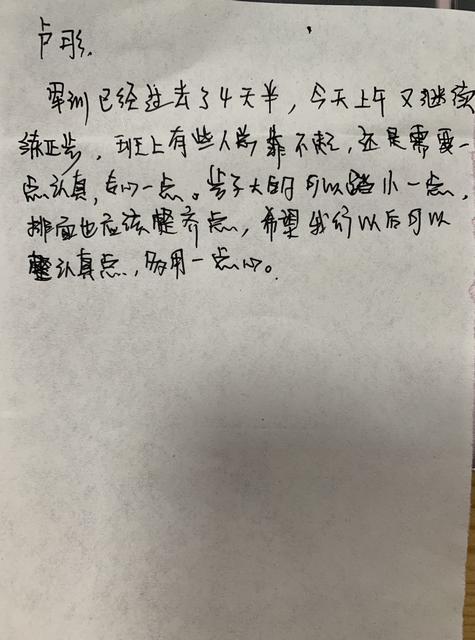 卢彤.
军训已经过去了4天半，今天上午又继续
练正步，班上有些人总靠不起，还是需要一
点认真，专心一点。步子大的可以踏小一点，
排面也应该整齐点，希望我们以后可以
认真点，多用一点心。